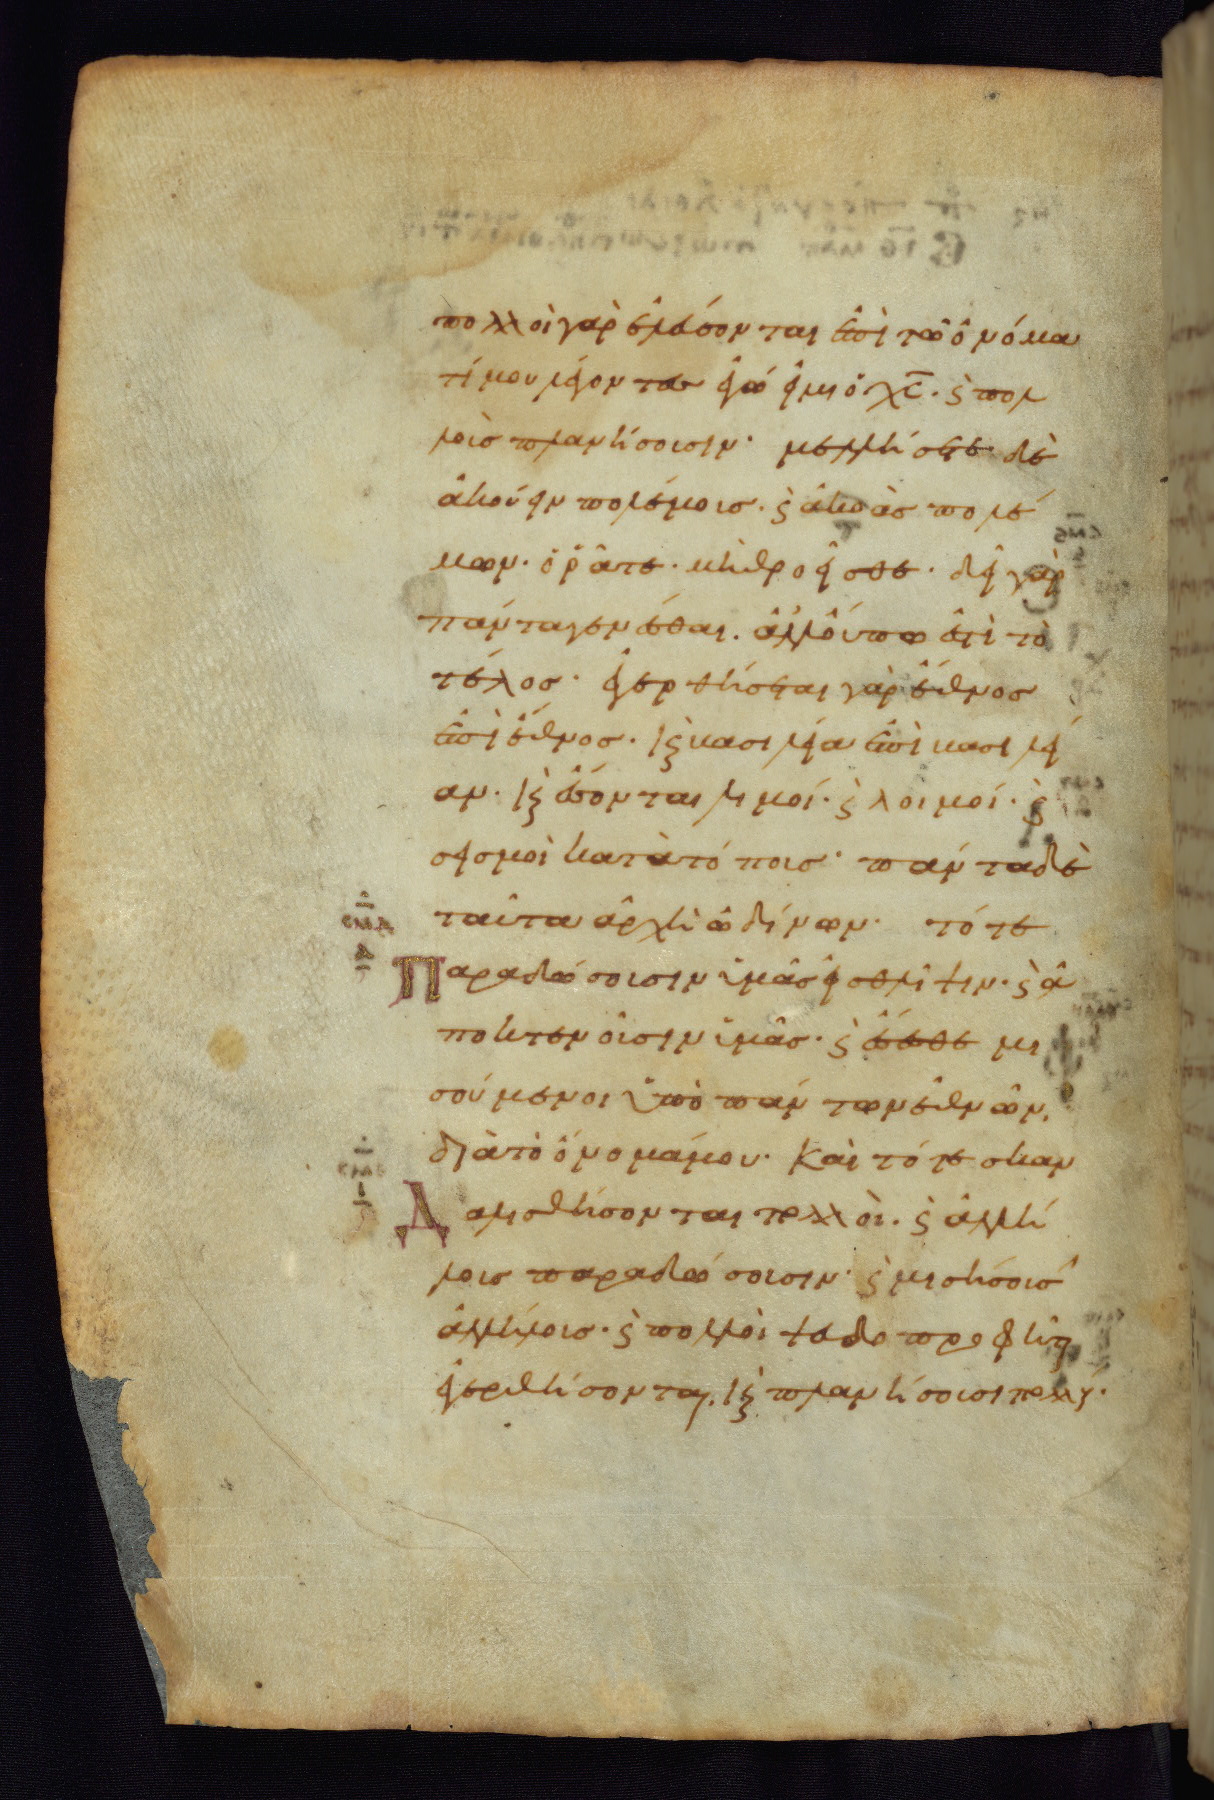 πολλοὶ γὰρ ἐλεύσονται ἐπὶ τῶ ὀνόμα
τί μου λέγοντες ἐγώ εἰμι ὁ χ̅ς̅. ϗ πολ
λοὺσ πλανήσουσιν· μελλήσετε δὲ
ἀκούειν πολέμους. ϗ ἀκοὰσ πολέ
μων. ὁρᾶτε. μὴ θροεῖσθε. δεῖ γὰρ
πάντα γενέσθαι. ἀλλ' οὔπω ἐστὶ τὸ
τέλοσ. ἐγερθήσεται γὰρ ἔθνοσ
ἐπὶ ἔθνοσ. ϗ βασιλεία ἐπὶ βασιλεί
αν. ϗ ἔσονται λιμοί. ϗ λοιμοί. ϗ
σεισμοὶ κατὰ τόπουσ· πάντα δὲ
ταῦτα ἀρχὴ ὠδίνων. τότε
Παραδώσουσιν ὑμᾶσ εἰσ θλίψιν. ϗ ἀ
ποκτενοῦσιν ὑμᾶσ. ϗ ἔσεσθε μι
σούμενοι ὑπὸ πάντων ἐθνῶν.
διὰ τὸ ὄνομά μου. Καὶ τότε σκαν
Δαλισθήσονται πολλοὶ. ϗ ἀλλή
λουσ παραδώσουσιν. ϗ μισήσουσ
ἀλλήλουσ. ϗ πολλοὶ ψευδοπροφῆται
ἐγερθήσονται. ϗ πλανήσουσι πολλούς.